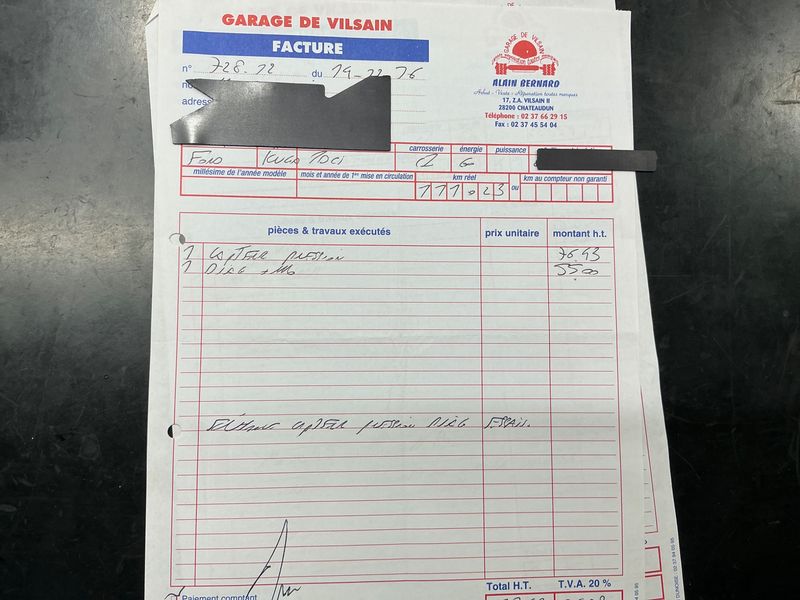 GARAGE DE VILSAIN
FACTURE
n° 728.12 du 19-12-16
adres
GARAGE DE VILSAIN
ALAIN BERNARD
Achat - Vente - Réparation toutes marques
17, Z.A. VILSAIN II
28200 CHATEAUDUN
Téléphone : 02 37 66 29 15
Fax : 02 37 45 54 04
carrosserie énergie puissance
FORD KUGA TDCI CI G
millésime de l'année modèle mois et année de 1re mise en circulation km réel ou km au compteur non garanti
111.023
pièces & travaux exécutés prix unitaire montant h.t.
1 CAPTEUR PRESSION 76.43
1 DIAG + MO 55.00
CAPTEUR pression DIAG ESSAIS.
Paiement comptant
Total H.T. T.V.A. 20 %